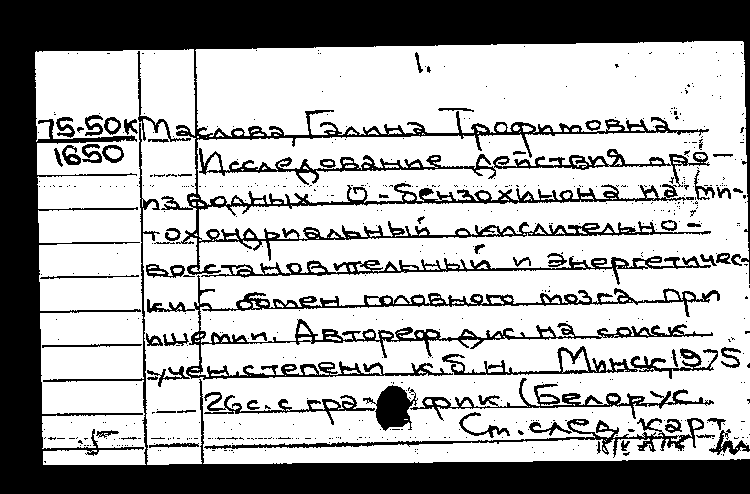 1.
75-50к Маслова, Галина Трофимовна
1650 Исследование действия про-
изводных О-бензохинона на ми-
тохондриальный окислительно-
восстановительный и энергетичес-
кий обмен головного мозга при
ишемии. Автореф. дис. на соиск.
учен. степени к.б.н. Минск, 1975.
26 с. с график. (Белорус.
Ст. след. карт.
5